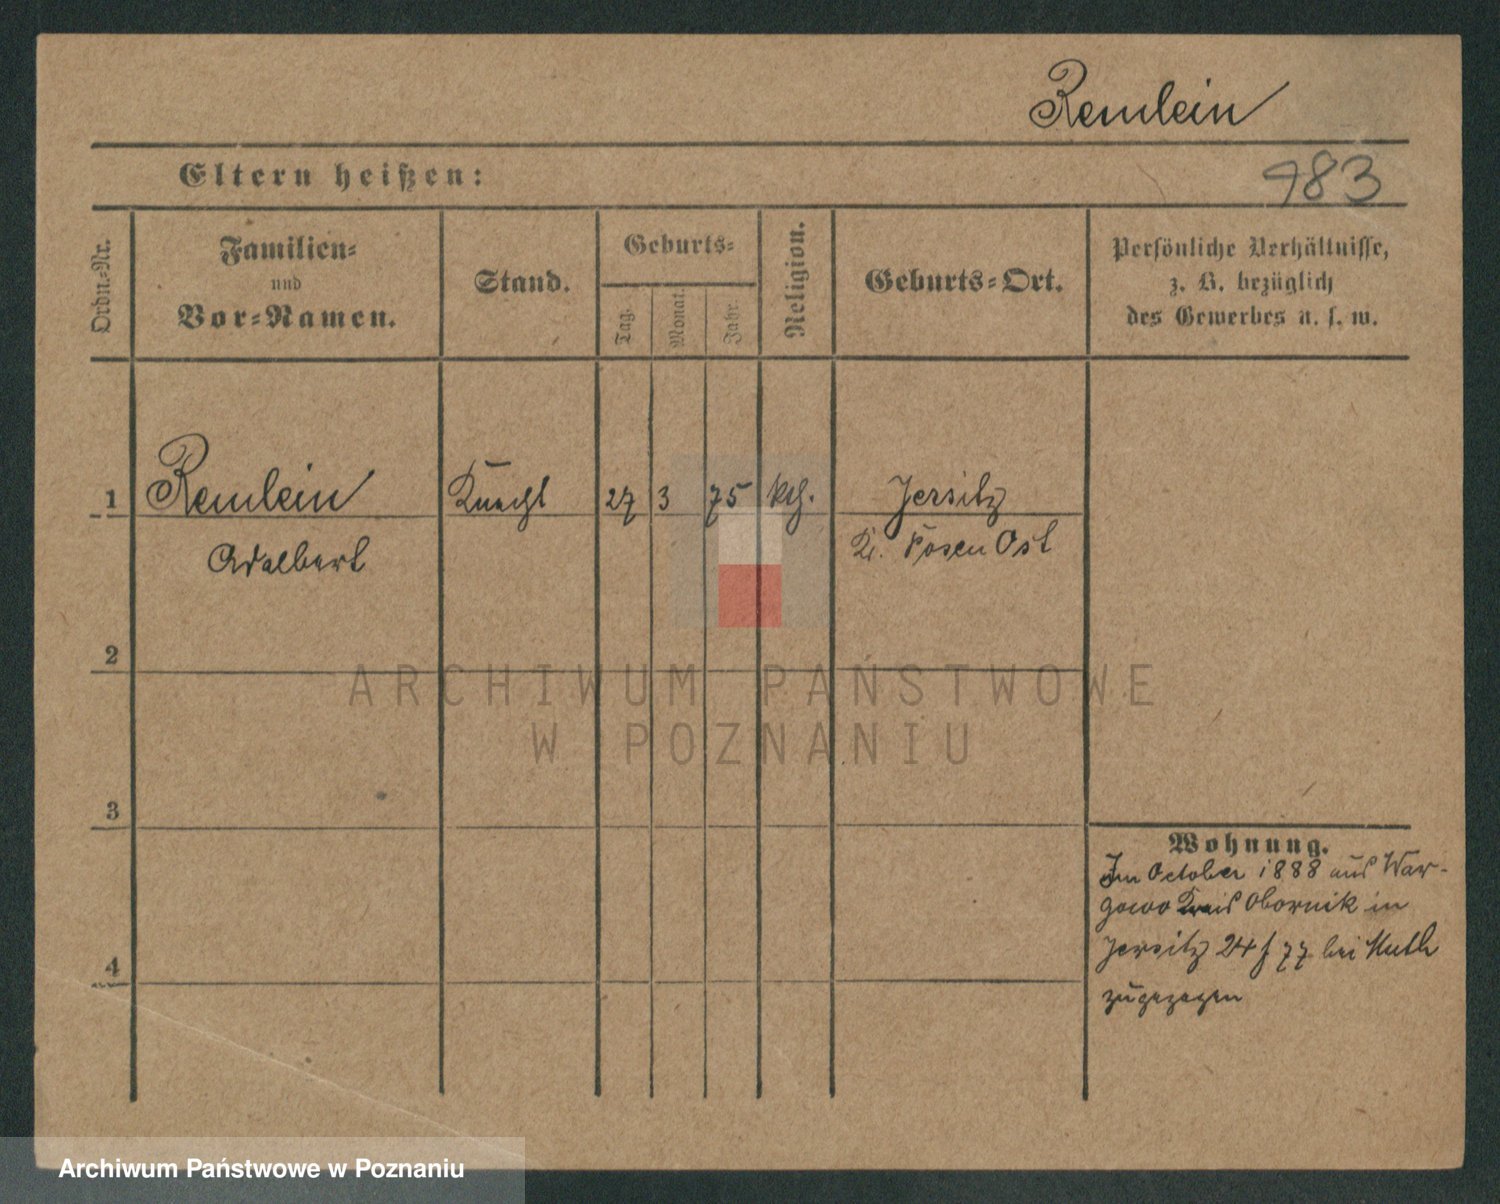 Remlein
Eltern heißen:
983
Ordn.-Nr.
Familien-
und
Vor-Namen.
Stand.
Geburts-
Tag.
Monat.
Jahr.
Religion.
Geburts-Ort.
Persönliche Verhältnisse,
z. B. bezüglich
des Gewerbes u. s. w.
1 Remlein Knecht 27 3 75 kth. Jersitz
Adalbert Kr. Posen Ost
2
3
4
Wohnung.
Im October 1888 aus War-
gowo Kreis Obornik in
Jersitz 24 f 77 bei Muth
zugezogen
ARCHIWUM PAŃSTWOWE
W POZNANIU
Archiwum Państwowe w Poznaniu